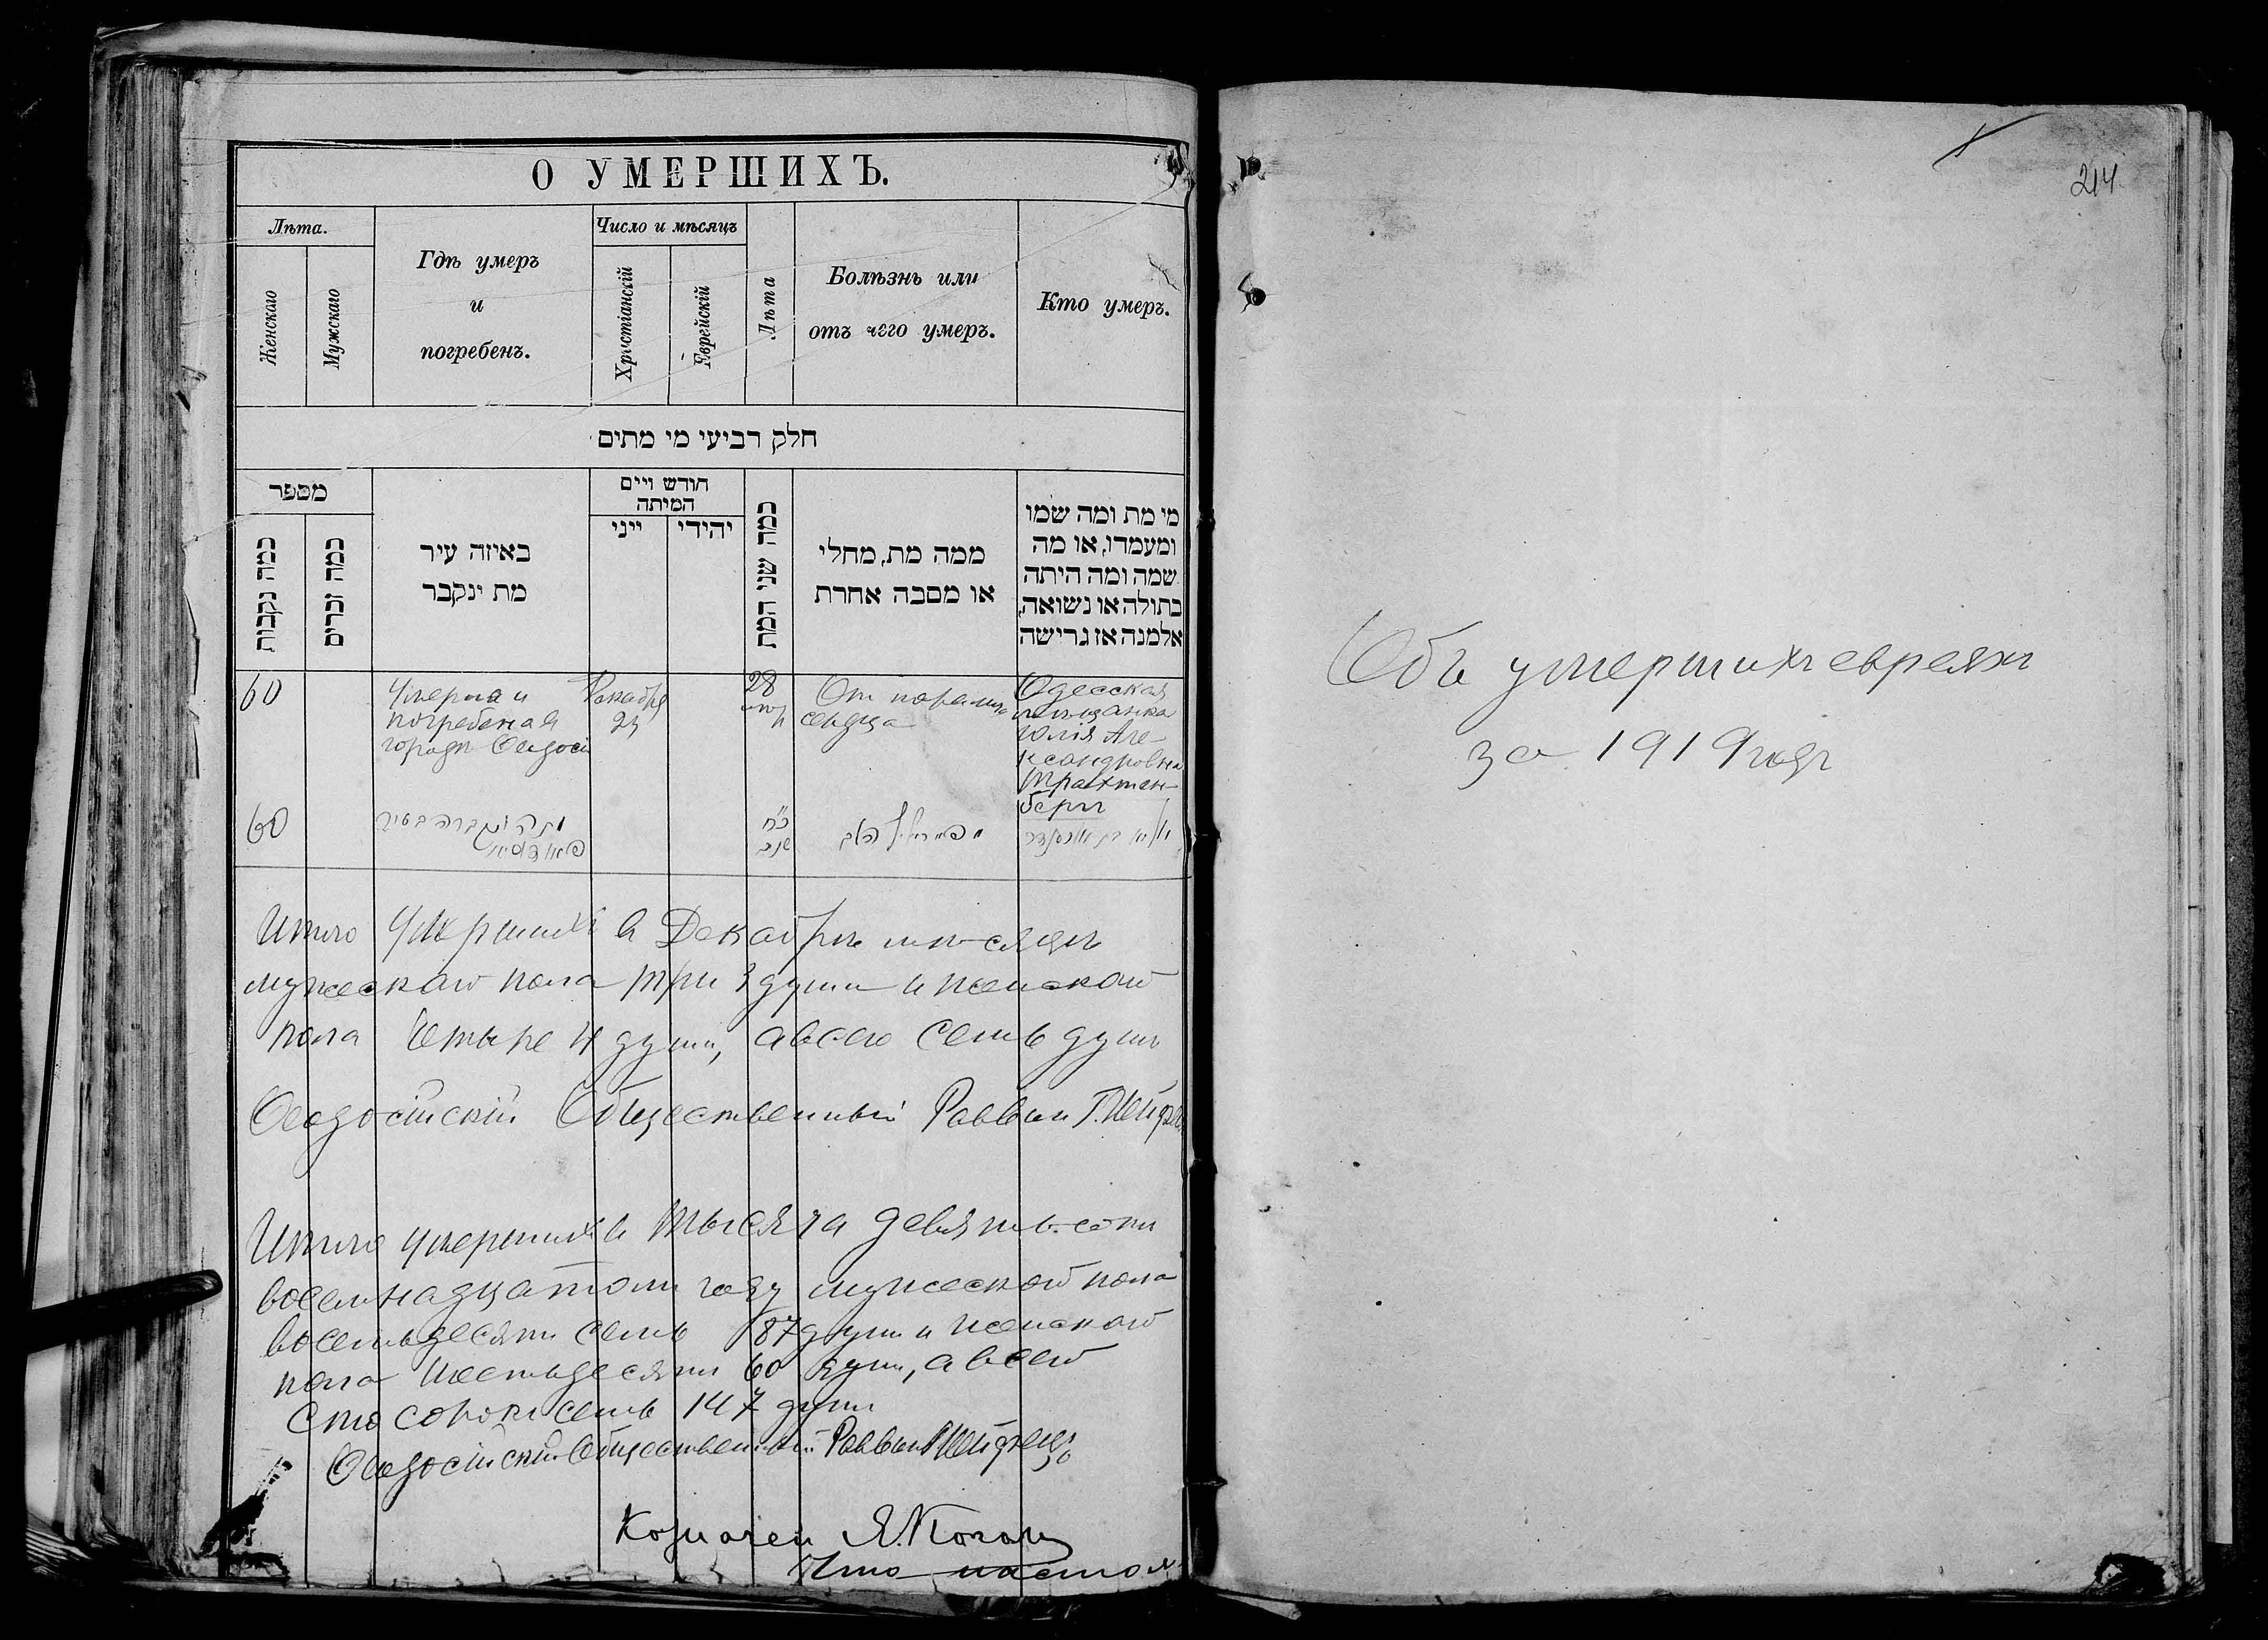 О УМЕРШИХЪ.
Лѣта.
Женскаго
Мужскаго
Гдѣ умеръ
и
погребенъ.
Число и мѣсяцъ
Христіанскій
Еврейскій
Лѣта
Болѣзнь или
отъ чего умеръ.
Кто умеръ.
חלק רביעי מי מתים
מספר
כמה נקבות
כמה זכרים
באיזה עיר
מת ינקבר
חודש ויים
המיתה
ייני
יהידי
כמה שני המת
ממה מת, מחלי
או מסבה אחרת
מי מת ומה שמו
ומעמדו, או מה
שמה ומה היתה
בתולה או נשואה,
אלמנה אז גרישה
60
Умерла и
погребена в
городѣ Ѳеодосіи
Декабря
23
28
лѣтъ
От паралича
сердца
Одесская
мѣщанка
Юлія Але-
ксандровна
Трахтен-
бергъ
60
כ״ח
שנה
Итого Умершихъ в Декабрѣ мѣсяцѣ
мужескаго пола три 3 души и женскаго
пола четыре 4 души, а всего семь душъ
Ѳеодосійскій Общественный Раввинъ
Итого умершихъ в тысяча девятьсотъ
восемнадцатомъ году мужескаго пола
восемьдесятъ семь 87 душъ и женскаго
пола шестьдесятъ 60 душъ, а всего
сто сорокъ семь 147 душъ
Ѳеодосійскій Общественный Раввинъ
Казначей Я. Коганъ
Что настоя-
214
Объ умершихъ евреяхъ
за 1919 годъ